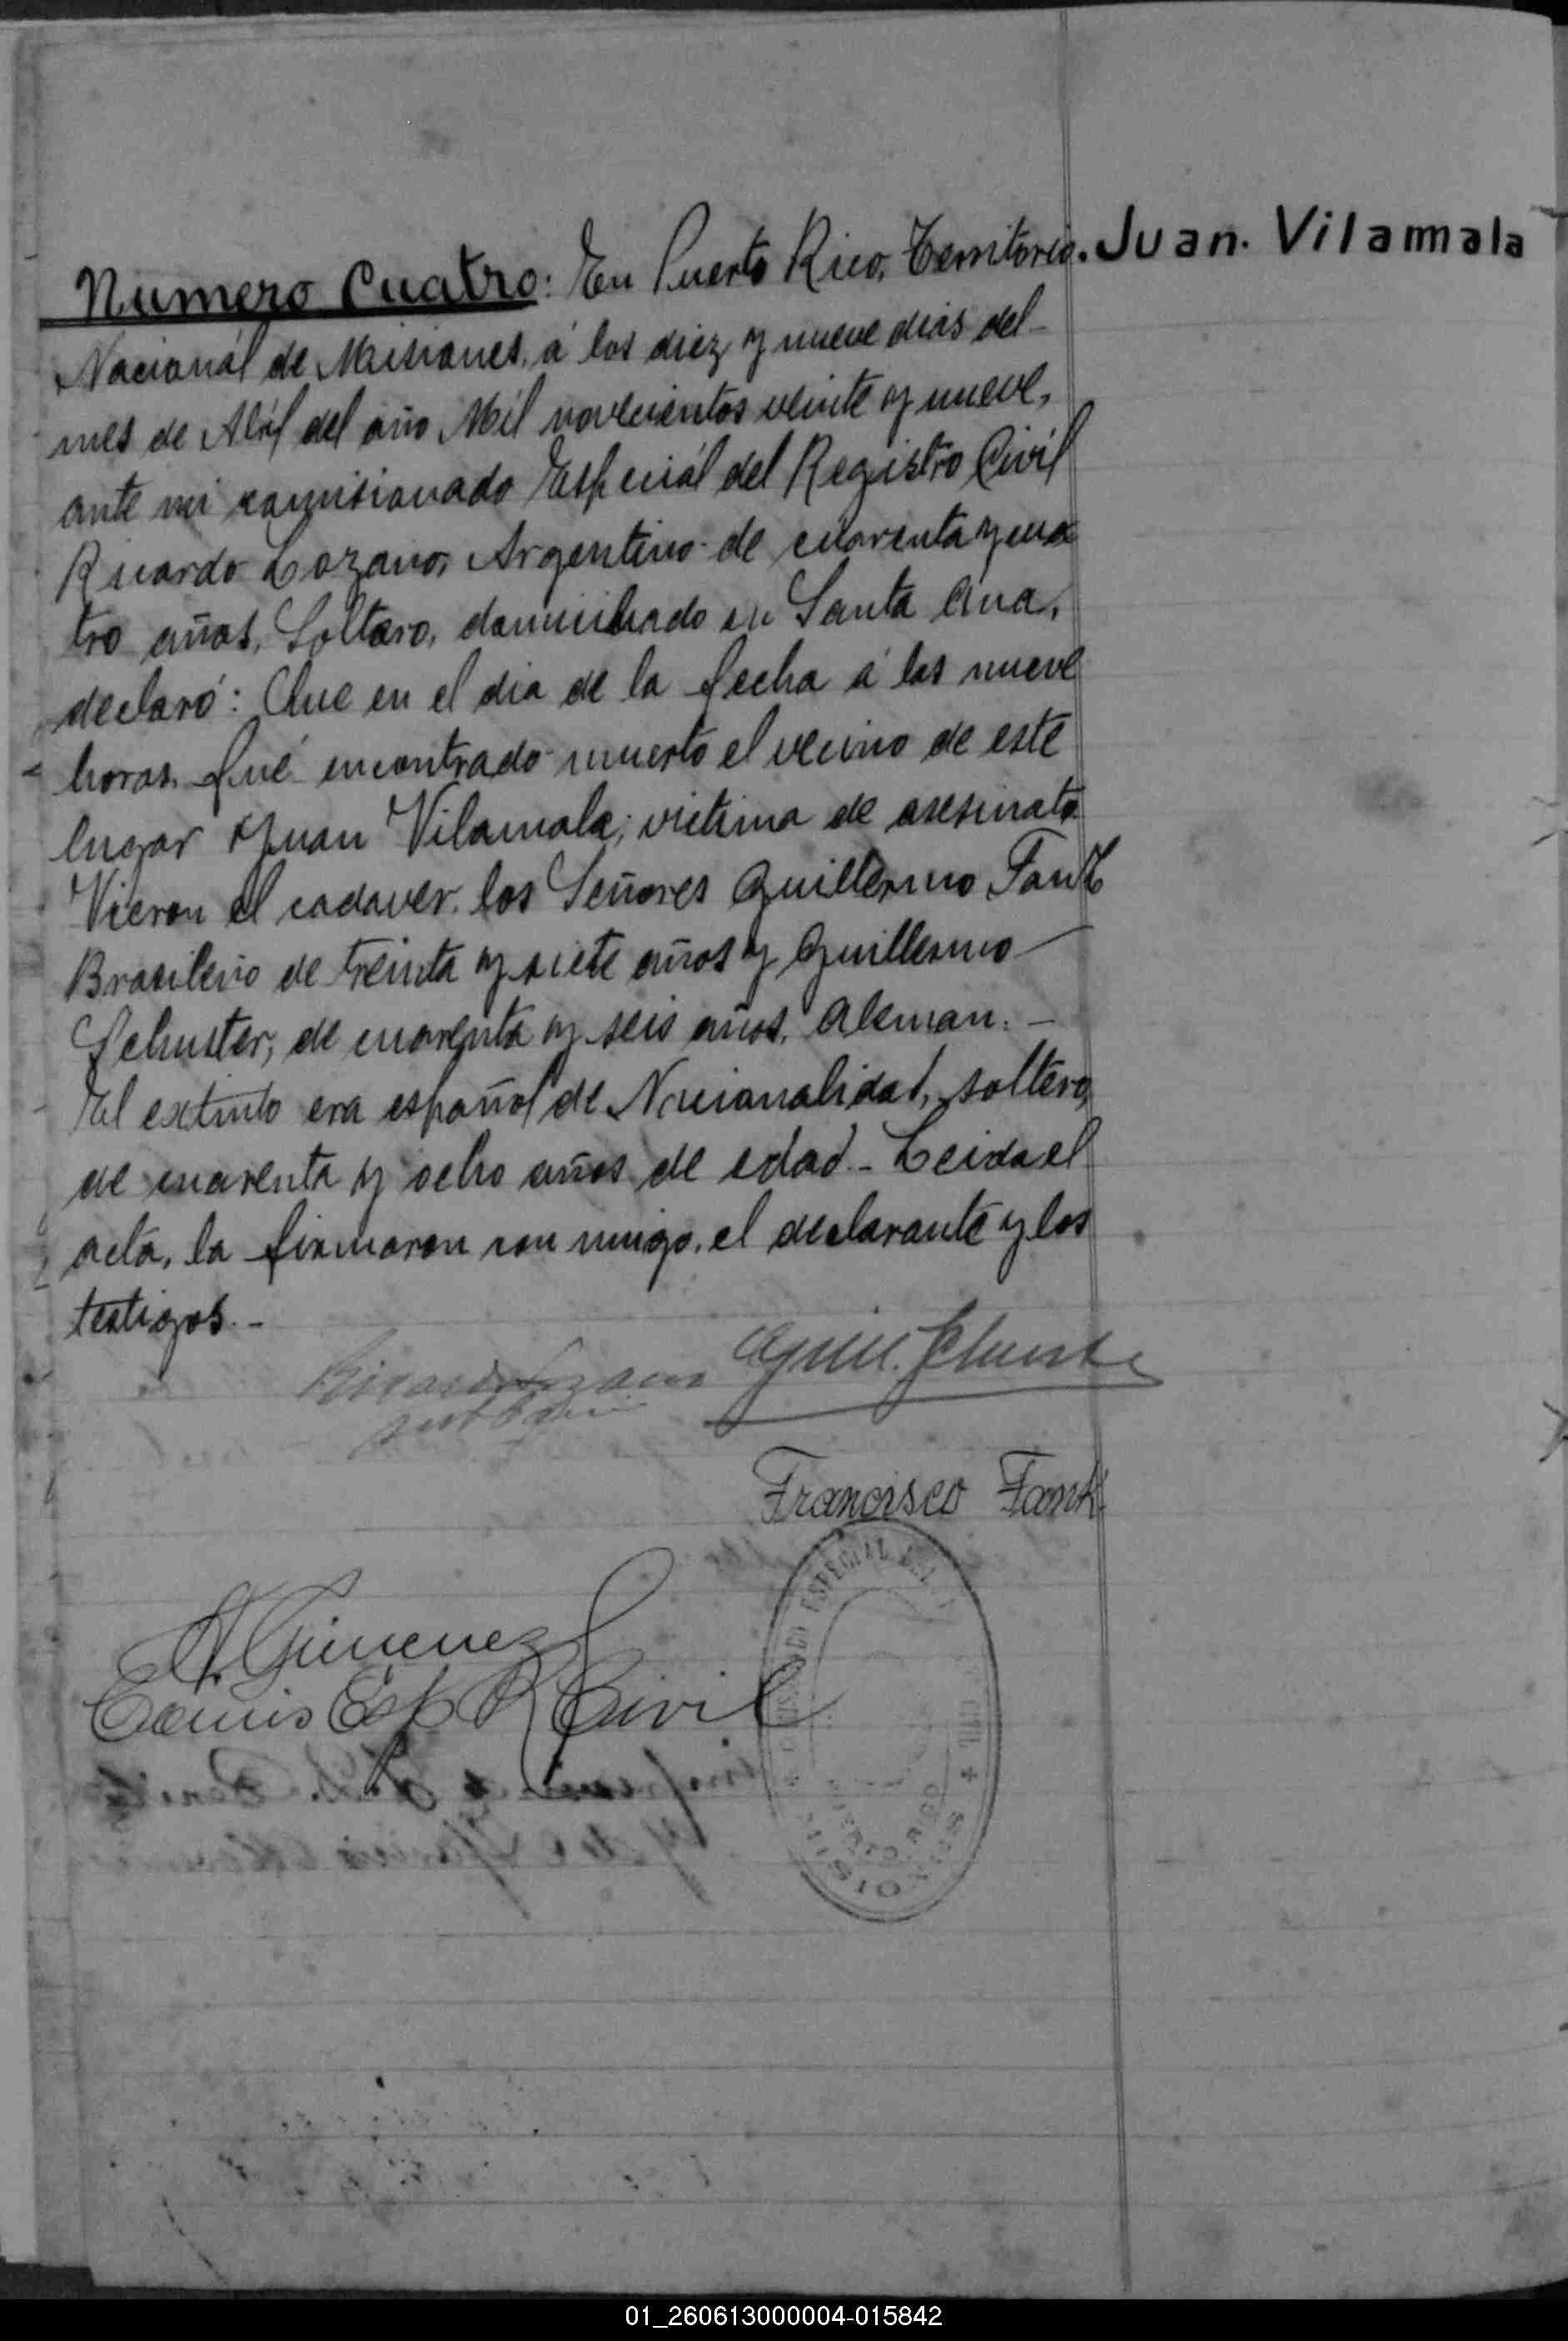 Juan. Vilamala
Numero Cuatro: En Puerto Rico, Territorio.
Nacionál de Misiones, á los diez y nueve dias del -
mes de Abríl del año Míl novecientos veinte y nueve,
ante mi comisionado Especiál del Registro Civíl
Ricardo Lozano, Argentino de cuarenta y cua
tro años, Soltero, domiciliado en Santa Ana,
declaró: Que en el dia de la fecha á las nueve
horas. fué encontrado muerto el vecino de este
lugar Juan Vilamala; victima de asesinato.
Vieron el cadaver. los Señores Guillermo Fank
Brasileño de treinta y siete años y Guillermo -
Schuster, de cuarenta y seis años, Aleman. -
El extinto era español de Nacionalidad, soltero,
de cuarenta y ocho años de edad. - Leida el
acta, la firmaron con migo, el declarante y los
testigos. -
Ricardo Lozano Guill. Schuster
Francisco Fank
Gimenez
Comis Esp R Civil
ESPECIAL DEL
CIVIL
PUERTO RICO
MISIONES
01_260613000004-015842